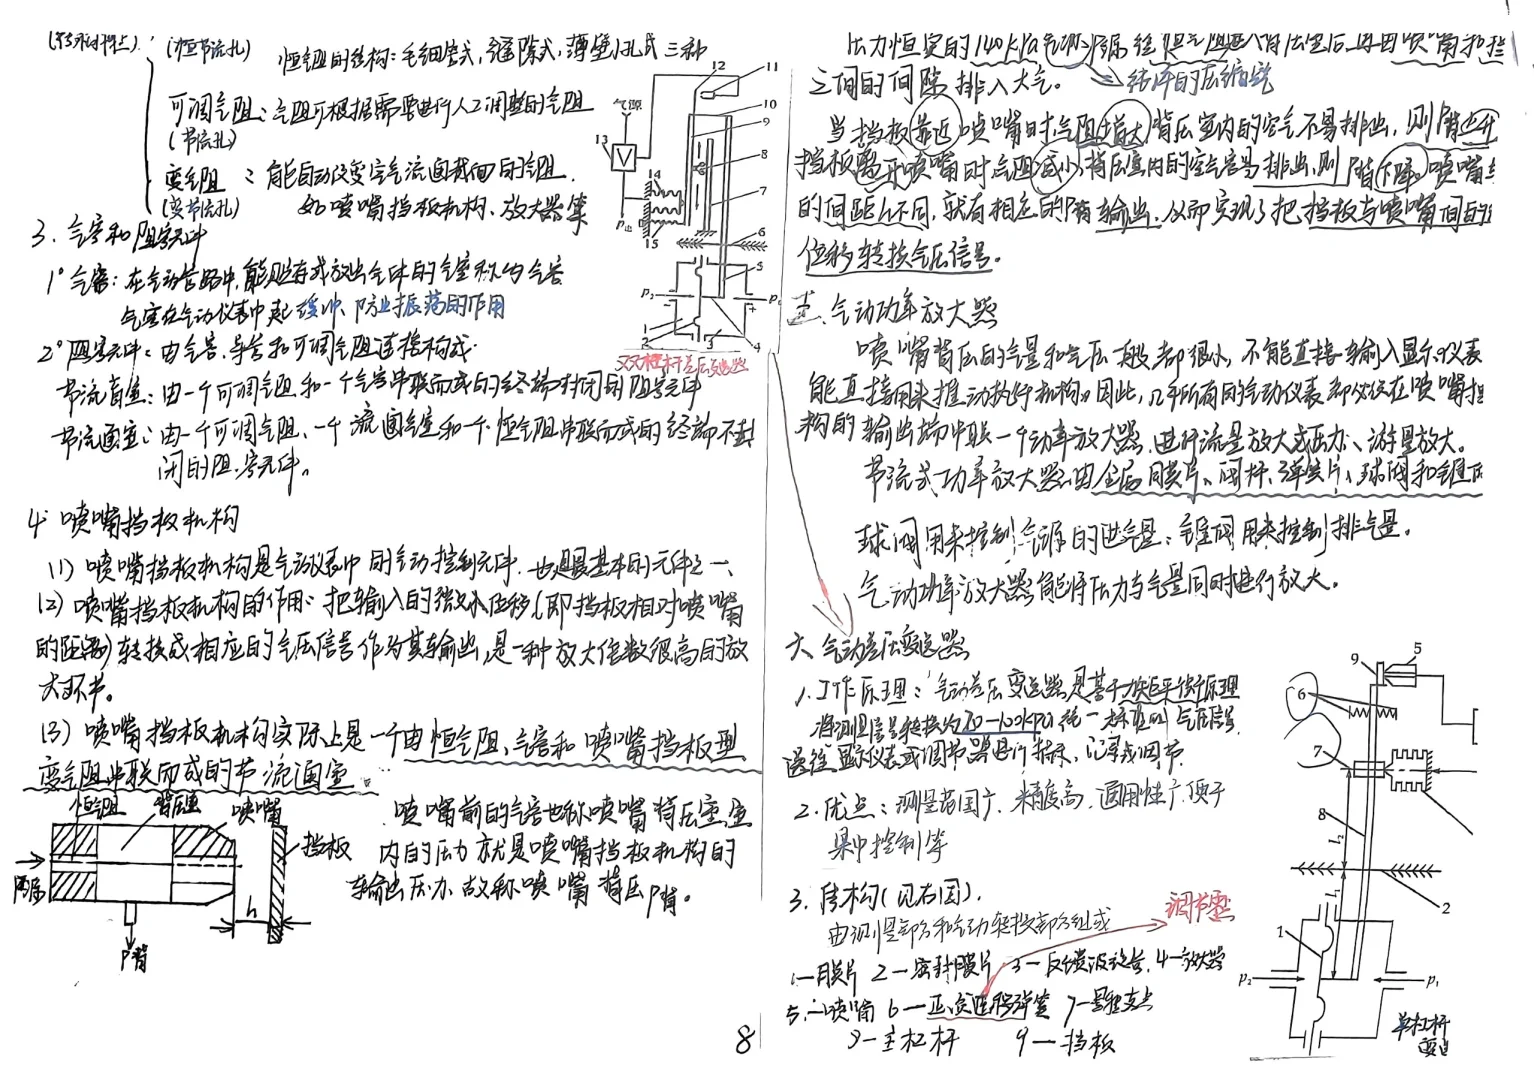 (恒节流孔) 恒气阻的结构:毛细管式,缝隙式,薄壁小孔式三种
可调气阻:气阻可根据需要进行人工调整的气阻
(节流孔)
变气阻:能自动改变空气流通截面的气阻.
(变节流孔) 如喷嘴挡板机构、放大器等
3. 气容和阻容元件
1°气容:在气动管路中,能贮存或放出气体的气室称为气容
气室在气动仪表中起缓冲、防止振荡的作用
2°阻容元件:由气容、导管和可调气阻连接构成.
节流盲室:由一个可调气阻和一个气容串联而成的终端封闭的阻容元件
节流通室:由一个可调气阻、一个流通气室和一个恒气阻串联而成的终端不封
闭的阻容元件。
气源
12
11
10
9
13
V
8
14
7
P出
15
6
5
P₂
P₁
+
1
2
3
4
双杠杆差压变送器
4. 喷嘴挡板机构
(1) 喷嘴挡板机构是气动仪表中的气动控制元件.也是最基本的元件之一、
(2) 喷嘴挡板机构的作用:把输入的微小位移(即挡板相对喷嘴
的距离)转换成相应的气压信号作为其输出,是一种放大倍数很高的放
大环节。
(3) 喷嘴挡板机构实际上是一个由恒气阻、气容和喷嘴挡板型
变气阻串联而成的节流通室。
恒气阻 背压室 喷嘴
挡板
h
P背
喷嘴前的气容也称喷嘴背压室,室
内的压力就是喷嘴挡板机构的
输出压力.故称喷嘴背压P背。
8
压力恒定的140kPa气源经恒气阻进入背压室后,再由喷嘴和挡
→结净的压缩空气
之间的间隙排入大气。
当挡板靠近喷嘴时气阻增大背压室内的空气不易排出,则P背上升
挡板离开喷嘴时气阻减小,背压室内的空气容易排出,则P背下降。喷嘴与
的间距h不同,就有相应的P背输出.从而实现了把挡板与喷嘴间的
位移转换气压信号。
五、气动功率放大器
喷嘴背压的气量和气压一般都很小,不能直接输入显示仪表
能直接用来推动执行机构。因此,几乎所有的气动仪表都必须在喷嘴挡
构的输出端串联一个功率放大器,进行流量放大或压力、流量放大。
节流式功率放大器:由金属膜片、阀杆、弹簧片、球阀和锥阀
球阀用来控制气源的进气量;锥阀用来控制排气量。
气动功率放大器能将压力与气量同时进行放大。
六、气动差压变送器
1. 工作原理:气动差压变送器是基于力矩平衡原理
将测量信号转换为20-100kPa统一标准的气压信号
送往显示仪表或调节器进行指示、记录或调节.
2. 优点:测量范围广、精度高、适用性广便于
集中控制等
3. 结构(见右图).
由测量部分和气动转换部分组成
调节零
1—膜片 2—密封膜片 3—反馈波纹管, 4—放大器
5.—喷嘴 6—正负迁移弹簧 7—量程支点
8—主杠杆 9—挡板
9
5
6
7
8
l₂
l₁
2
1
P₂
P₁
单杠杆
变送